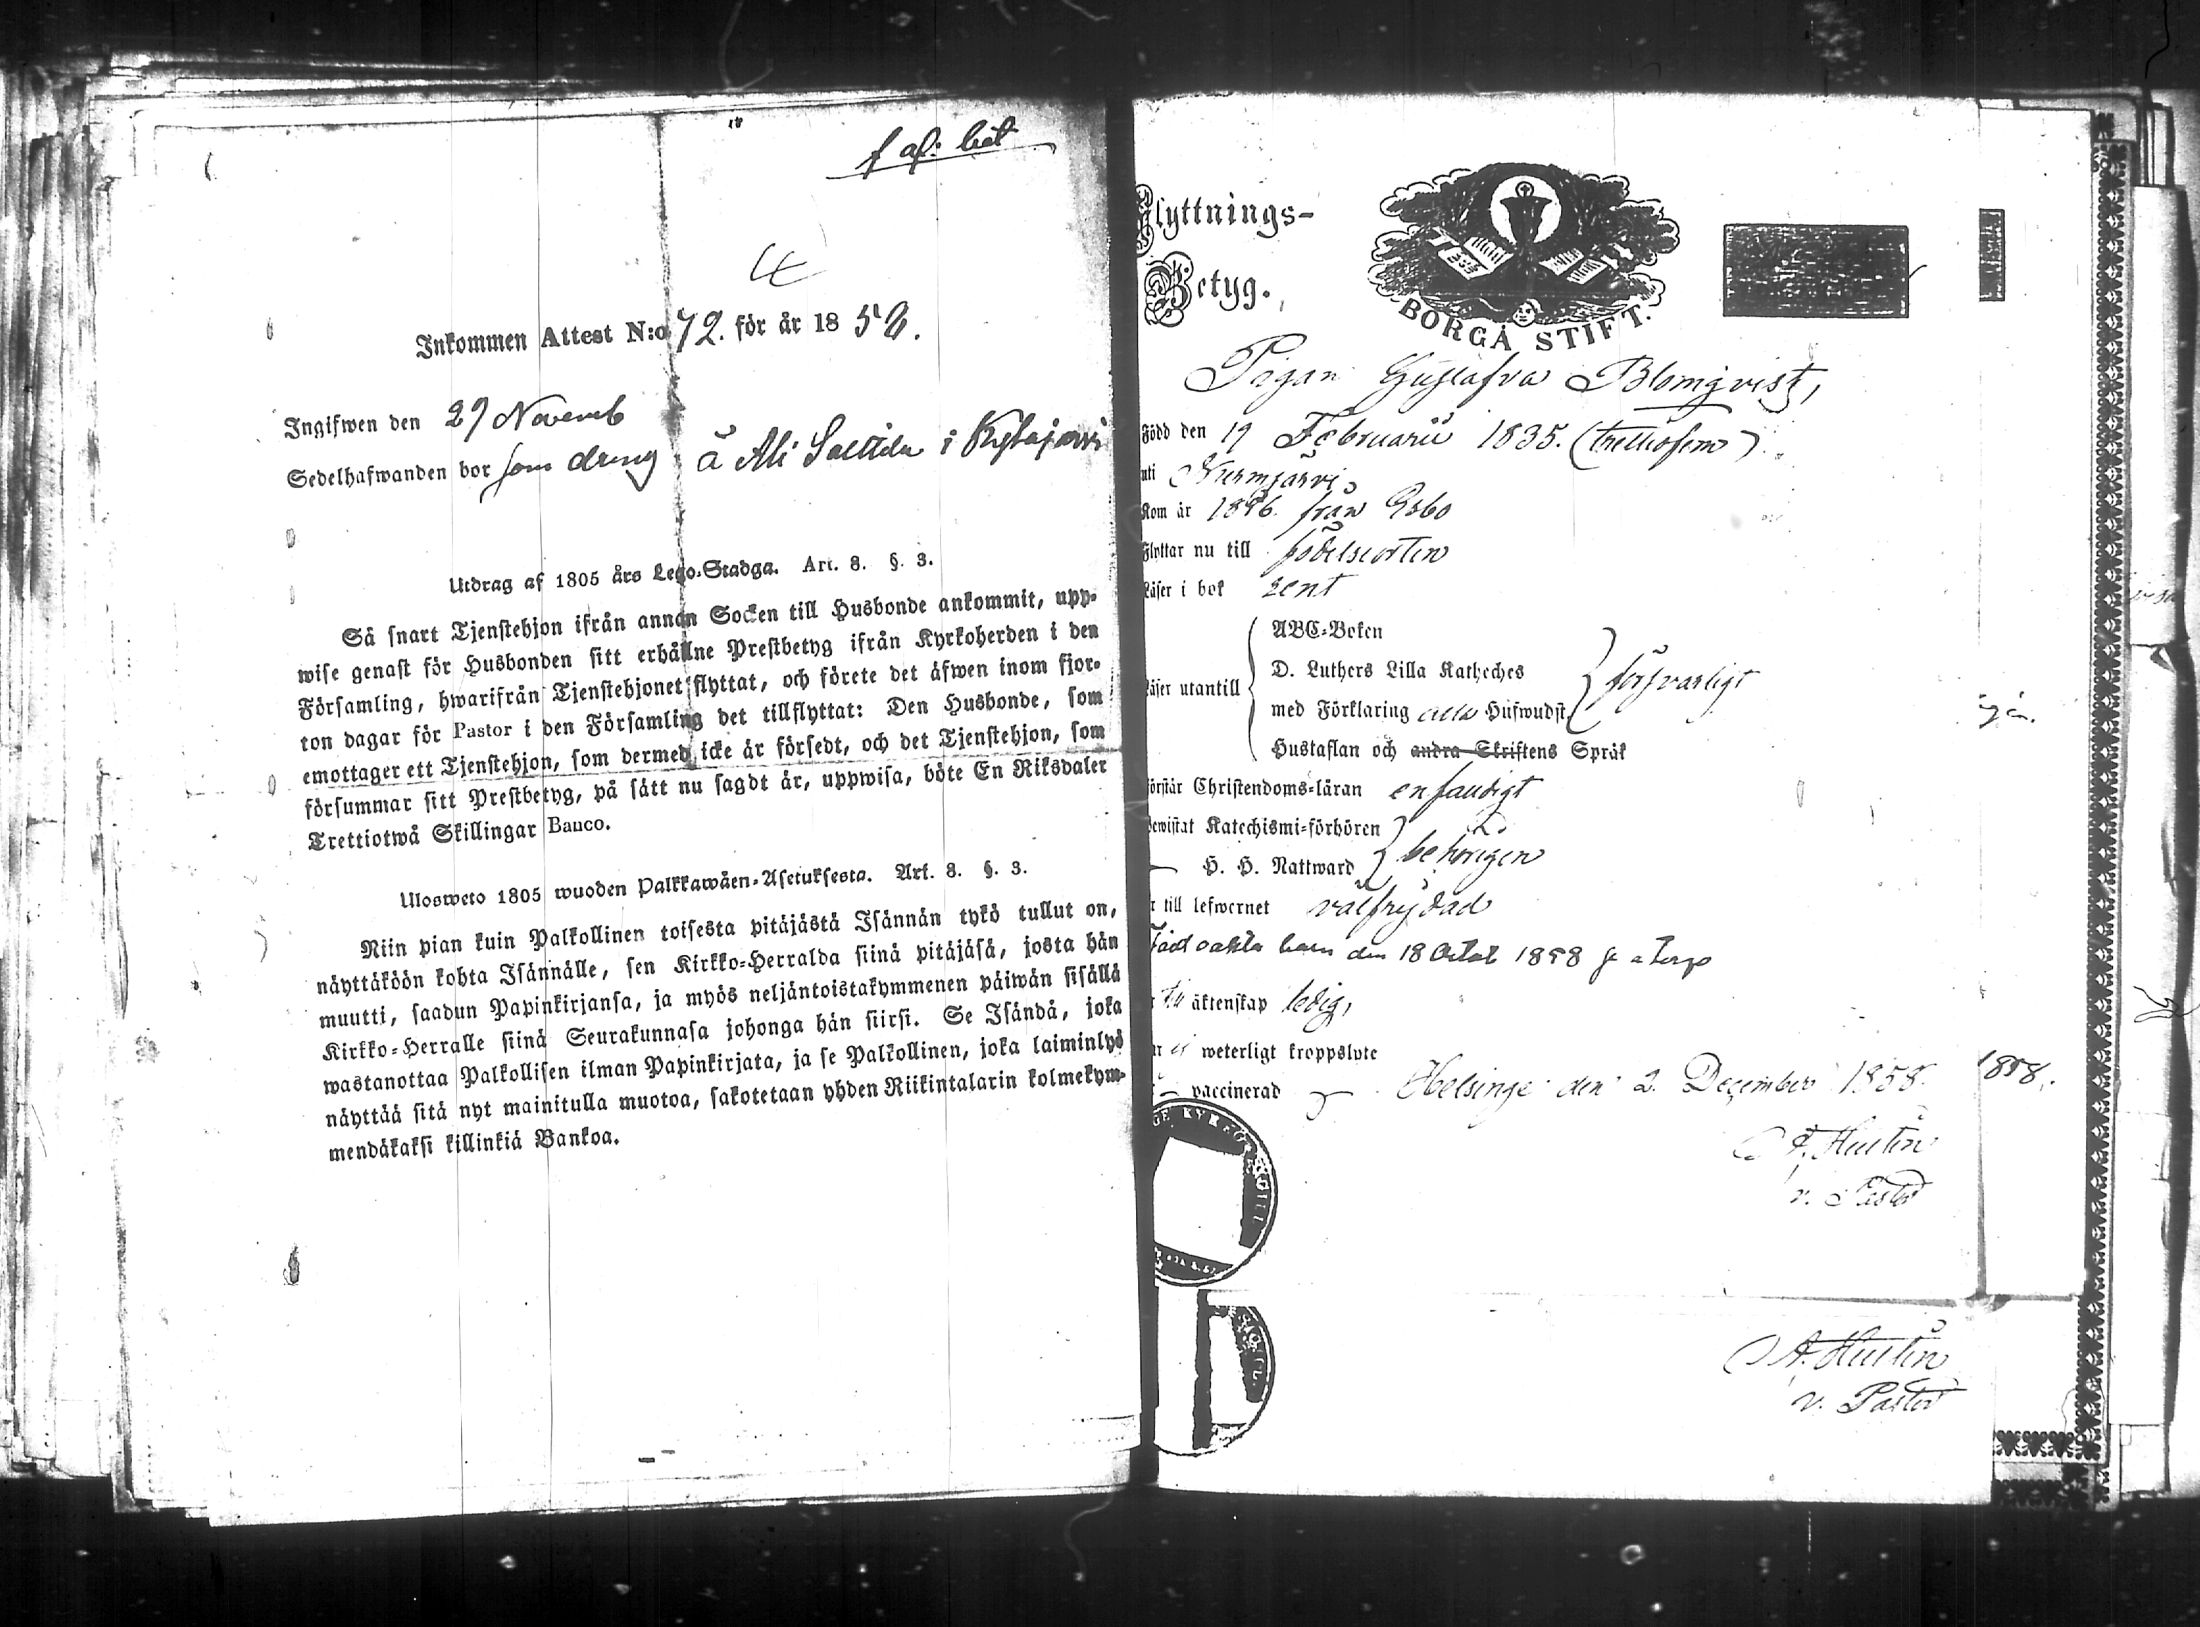 f af: bet
Inkommen Attest N:o 72. för år 18 58.
Ingifwen den 29 Novemb
Sedelhafwanden bor som dreng å Ali Solttila i Kytäjärvi
Utdrag af 1805 års Lego-Stadga. Art. 8. §. 3.
Så snart Tjenstehjon ifrån annan Socken till Husbonde ankommit, upp-
wise genast för Husbonden sitt erhållne Prestbetyg ifrån Kyrkoherden i den
Församling, hwarifrån Tjenstehjonet flyttat, och förete det äfwen inom fjor-
ton dagar för Pastor i den Församling det tillflyttat: Den Husbonde, som
emottager ett Tjenstehjon, som dermed icke är försedt, och det Tjenstehjon, som
försummar sitt Prestbetyg, på sätt nu sagdt är, uppwisa, böte En Riksdaler
Trettiotwå Skillingar Banco.
Ulosweto 1805 wuoden Palkkawäen-Asetuksesta. Art. 8. §. 3.
Niin pian kuin Palkollinen toisesta pitäjästä Isännän tykö tullut on,
näyttäköön kohta Isännälle, sen Kirkko-Herralda siinä pitäjäsä, josta hän
muutti, saadun Papinkirjansa, ja myös neljäntoistakymmenen päiwän sisällä
Kirkko-Herralle siinä Seurakunnasa johonga hän siirsi. Se Isändä, joka
wastanottaa Palkollisen ilman Papinkirjata, ja se Palkollinen, joka laiminlyö
näyttää sitä nyt mainitulla muotoa, sakotetaan yhden Riikintalarin kolmekym-
mendäkaksi killinkiä Bankoa.
Flyttnings-
Betyg.
BORGÅ STIFT.
Pigan Gustafva Blomqvist,
Född den 19 Februarii 1835. (trettiofem)
uti Nurmijärvi
Kom år 1856 från Esbo
Flyttar nu till födelseorten
Läser i bok rent
ABC-Boken
D. Luthers Lilla Katheches
Läser utantill
försvarligt
med Förklaring alla Hufwudst.
Hustaflan och andra Skriftens Språk
Förstår Christendoms-läran enfaldigt
Bewistat Katechismi-förhören
behörigen
H. H. Nattward
Är till lefwernet välfrejdad
Född oäkta barn den 18 Octob 1858
äktenskap ledig,
weterligt kroppslyte
vaccinerad
Helsinge den 2 December 1858.
1858.
A. Hultin
v. Pastor
A. Hultin
v. Pastor